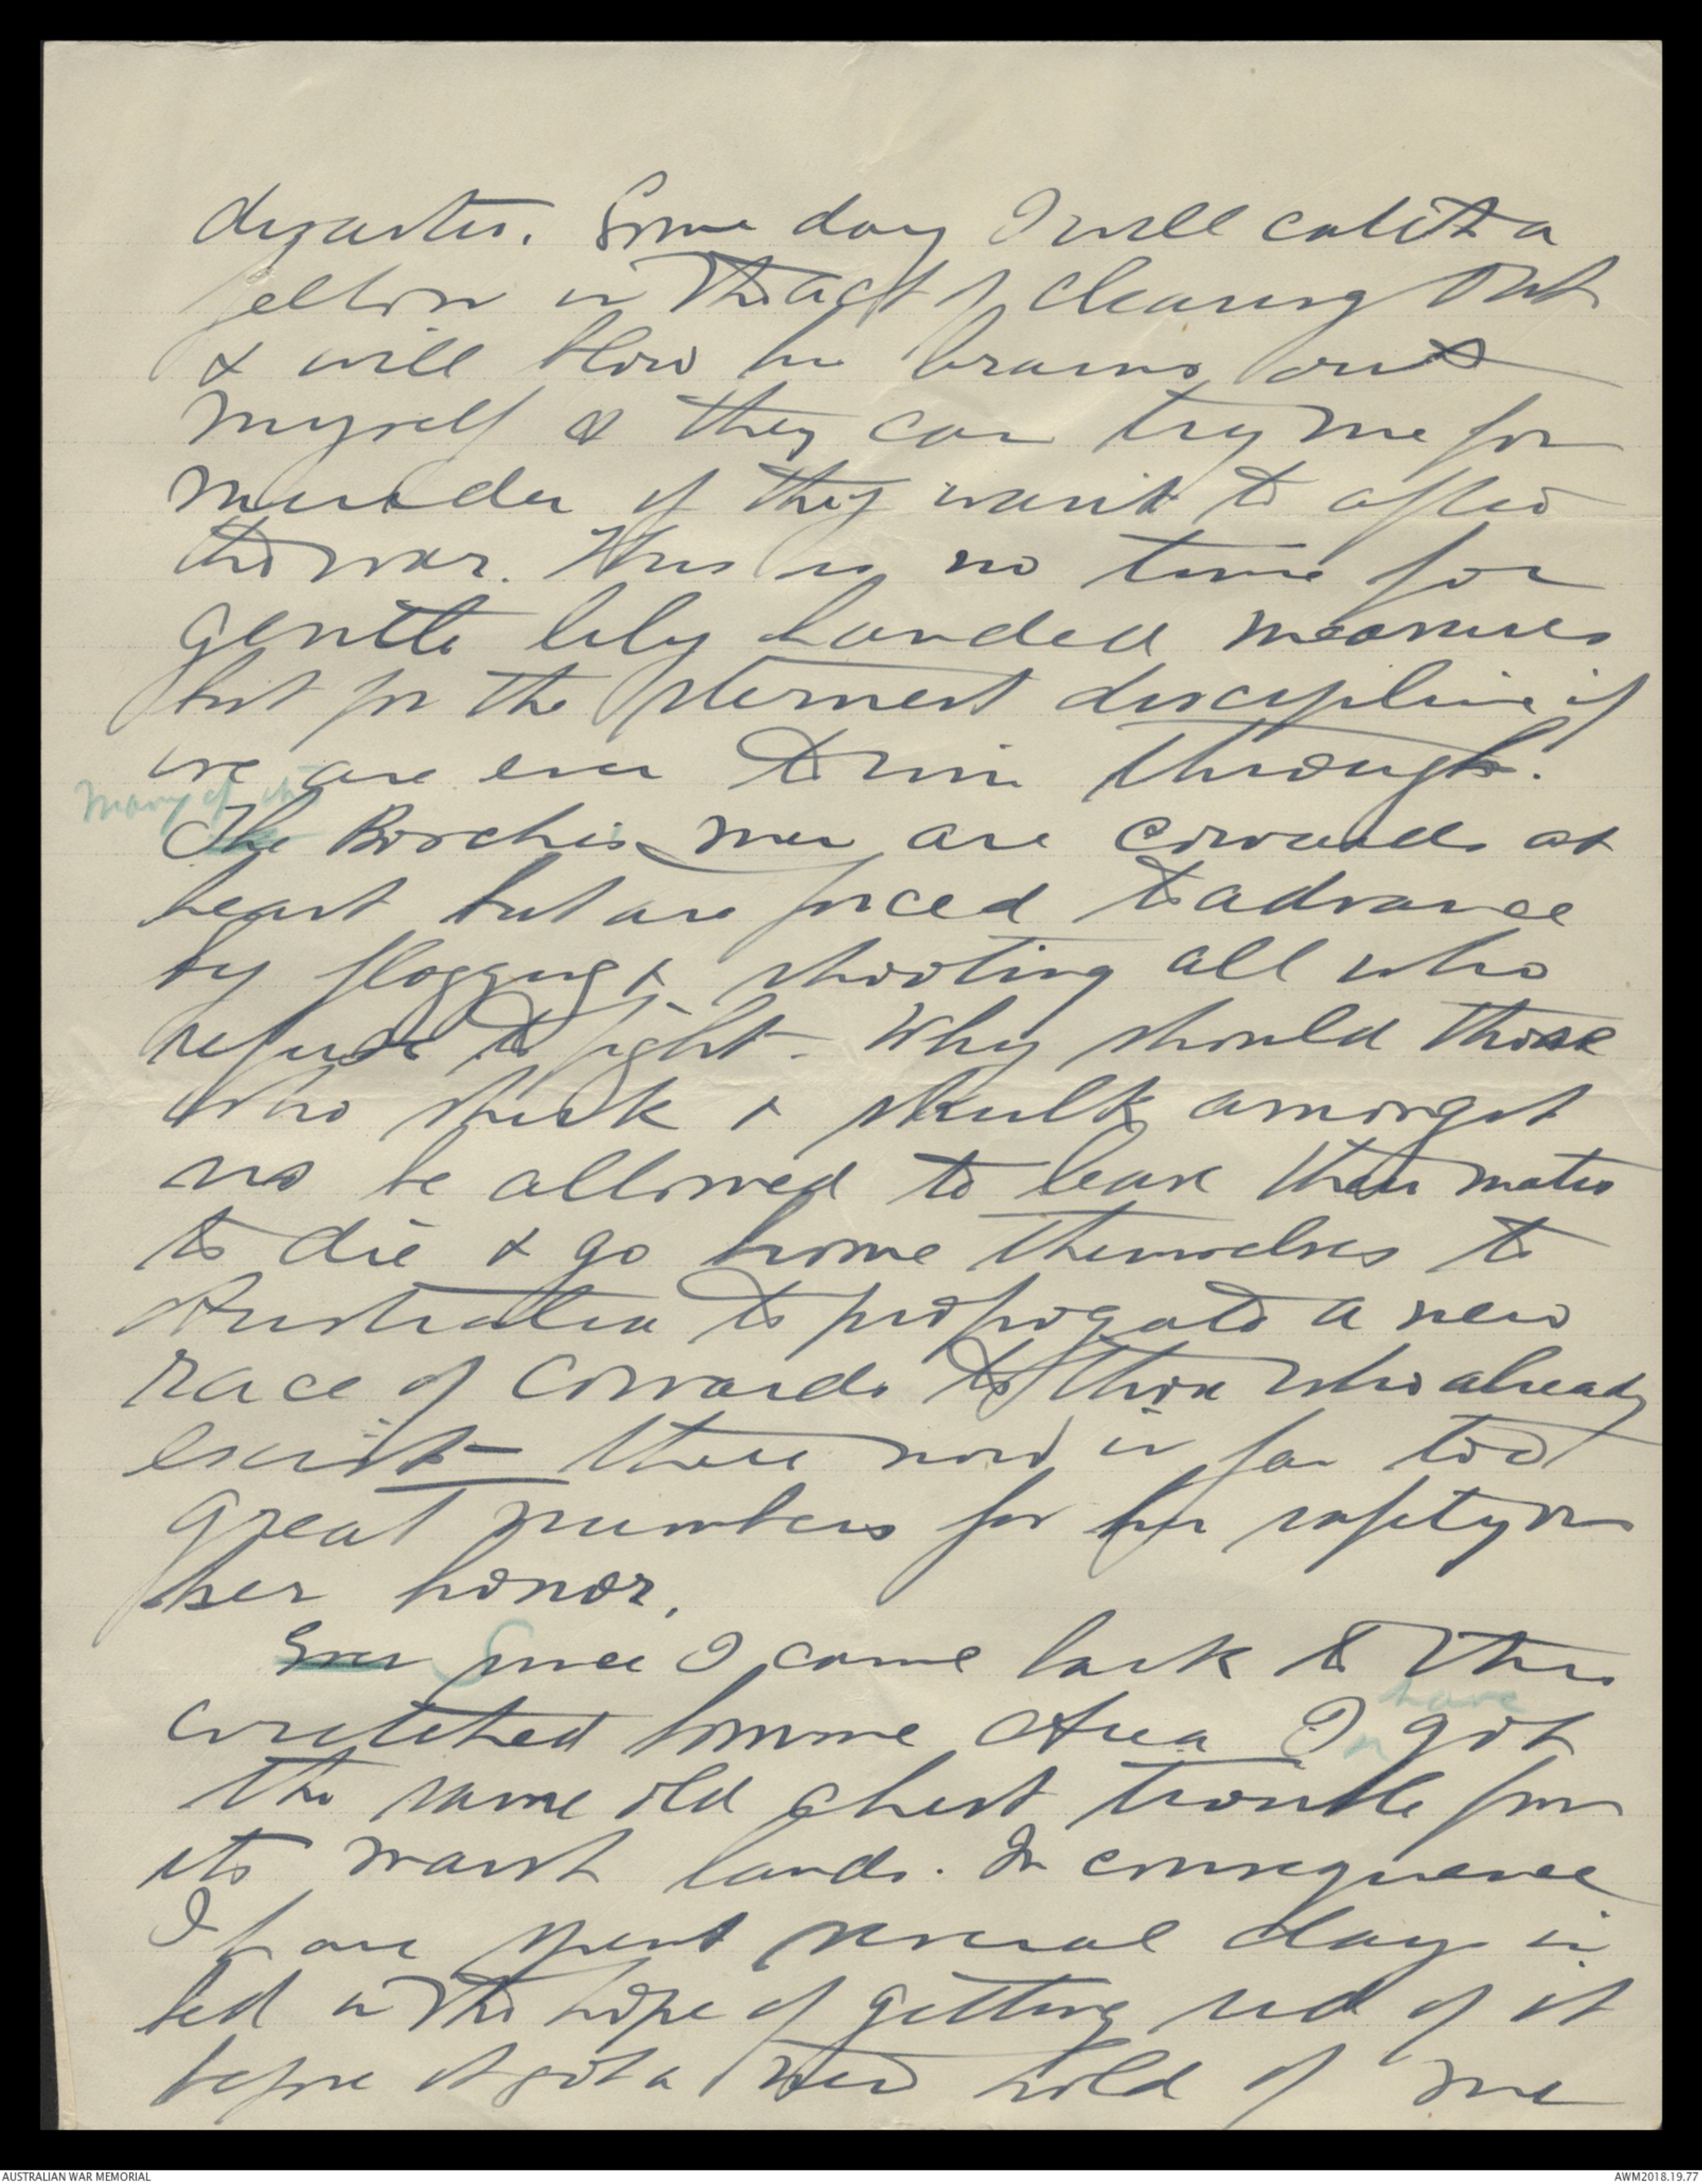 disaster. Some day I will catch a
fellow in the act of clearing out
& will blow his brains out
myself & they can try me for
murder if they want to after
the war. This is no time for
gentle lily handed measures
but for the sternest discipline if
we are ever to win through.
Many of the
The Borchis men are cowards at
heart but are forced to advance
by flogging & shooting all who
refuse to fight. Why should those
who shirk & skulk amongst
us be allowed to leave their mates
to die & go home themselves to
Australia to propogate a new
race of cowards to those who already
exist there now in far too
great numbers for her safety or
her honor.
Ever since I came back to this
have
wretched Somme Area I got
the same old chest trouble from
its marsh lands. In consequence
I have spent several days in
bed in the hope of getting rid of it
before it got a new hold of me
AUSTRALIAN WAR MEMORIAL
AWM2018.19.77